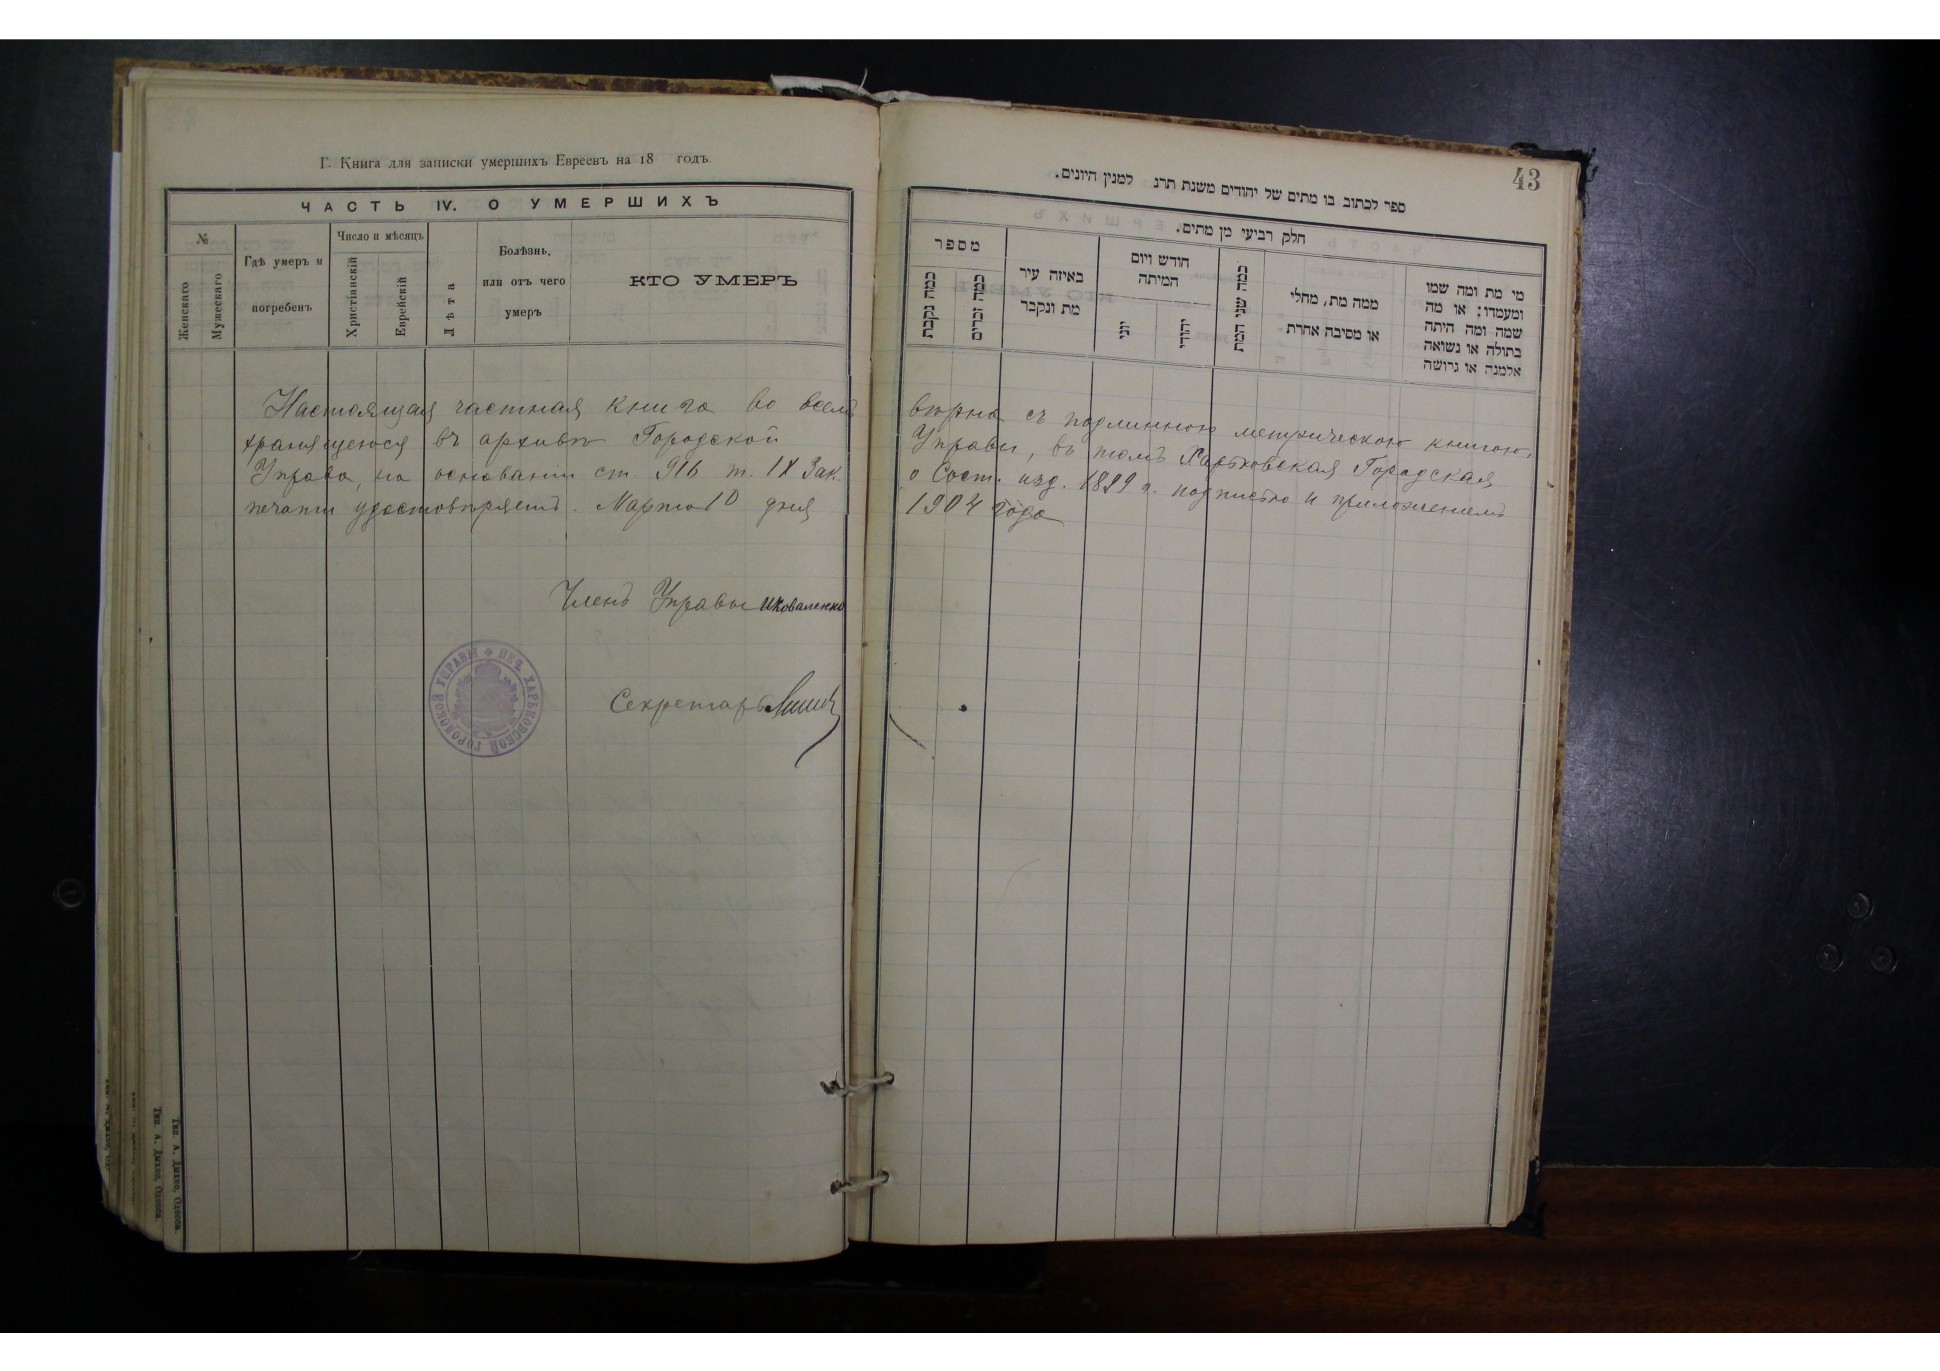 Г. Книга для записки умершихъ Евреевъ на 18 годъ.
ЧАСТЬ IV. О УМЕРШИХЪ
№
Женскаго
Мужескаго
Гдѣ умеръ и
погребенъ
Число и мѣсяцъ
Христіанскій
Еврейскій
Лѣта
Болѣзнь,
или отъ чего
умеръ
КТО УМЕРЪ
Настоящая частная книга во всемъ
хранящеюся въ архивѣ Городской
Управа, на основаніи ст. 916 т. IX Зак.
печати удостовѣряетъ. Марта 10 дня
Членъ Управы ИКоваленко
Секретарь
ПЕЧ. ХАРЬКОВСКОЙ ГОРОДСКОЙ УПРАВЫ
Тип. А. Дыхно, Одесса.
Тип. А. Дыхно, Одесса.
43
ספר לכתוב בו מתים של יהודים משנת תרנ למנין היונים.
חלק רביעי מן מתים.
מספר
כמה נקבות
כמה זכרים
באיזה עיר
מת ונקבר
חודש ויום
המיתה
יוני
יהודי
כמה שני המת
ממה מת, מחלי
או מסיבה אחרת
מי מת ומה שמו
ומעמדו: או מה
שמה ומה היתה
בתולה או נשואה
אלמנה או גרושה
вѣрна съ подлинною метрическою книгою,
Управы, въ томъ Харьковская Городская
о Сост. изд. 1899 г. подписью и приложеніемъ
1904 года